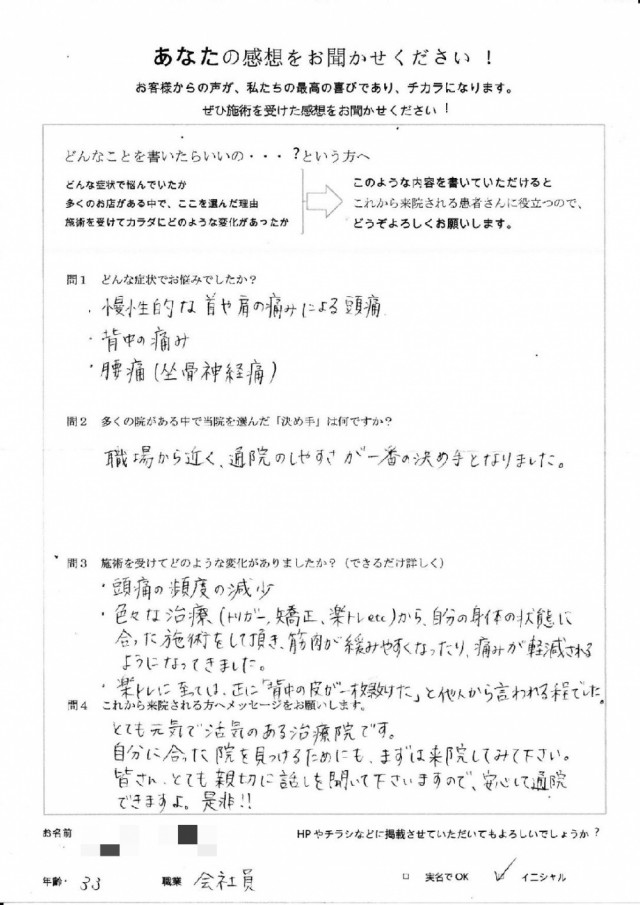 あなたの感想をお聞かせください！
お客様からの声が、私たちの最高の喜びであり、チカラになります。
ぜひ施術を受けた感想をお聞かせください！
どんなことを書いたらいいの・・・？という方へ
どんな症状で悩んでいたか
多くのお店がある中で、ここを選んだ理由
施術を受けてカラダにどのような変化があったか
このような内容を書いていただけると
これから来院される患者さんに役立つので、
どうぞよろしくお願いします。
問1 どんな症状でお悩みでしたか？
・慢性的な首や肩の痛みによる頭痛
・背中の痛み
・腰痛(坐骨神経痛)
問2 多くの院がある中で当院を選んだ「決め手」は何ですか？
職場から近く、通院のしやすさが一番の決め手となりました。
問3 施術を受けてどのような変化がありましたか？（できるだけ詳しく）
・頭痛の頻度の減少
・色々な治療(トリガー、矯正、楽トレetc)から、自分の身体の状態に
合った施術をして頂き、筋肉が緩みやすくなったり、痛みが軽減される
ようになってきました。
・楽トレに至っては、正に「背中の皮が一枚剥けた」と他人から言われる程でした。
問4 これから来院される方へメッセージをお願いします。
とても元気で活気のある治療院です。
自分に合った院を見つけるためにも、まずは来院してみて下さい。
皆さん、とても親切に話しを聞いて下さいますので、安心して通院
できますよ。是非!!
お名前
HPやチラシなどに掲載させていただいてもよろしいでしょうか？
年齢・ 33 職業 会社員 □ 実名でOK ✓ イニシャル